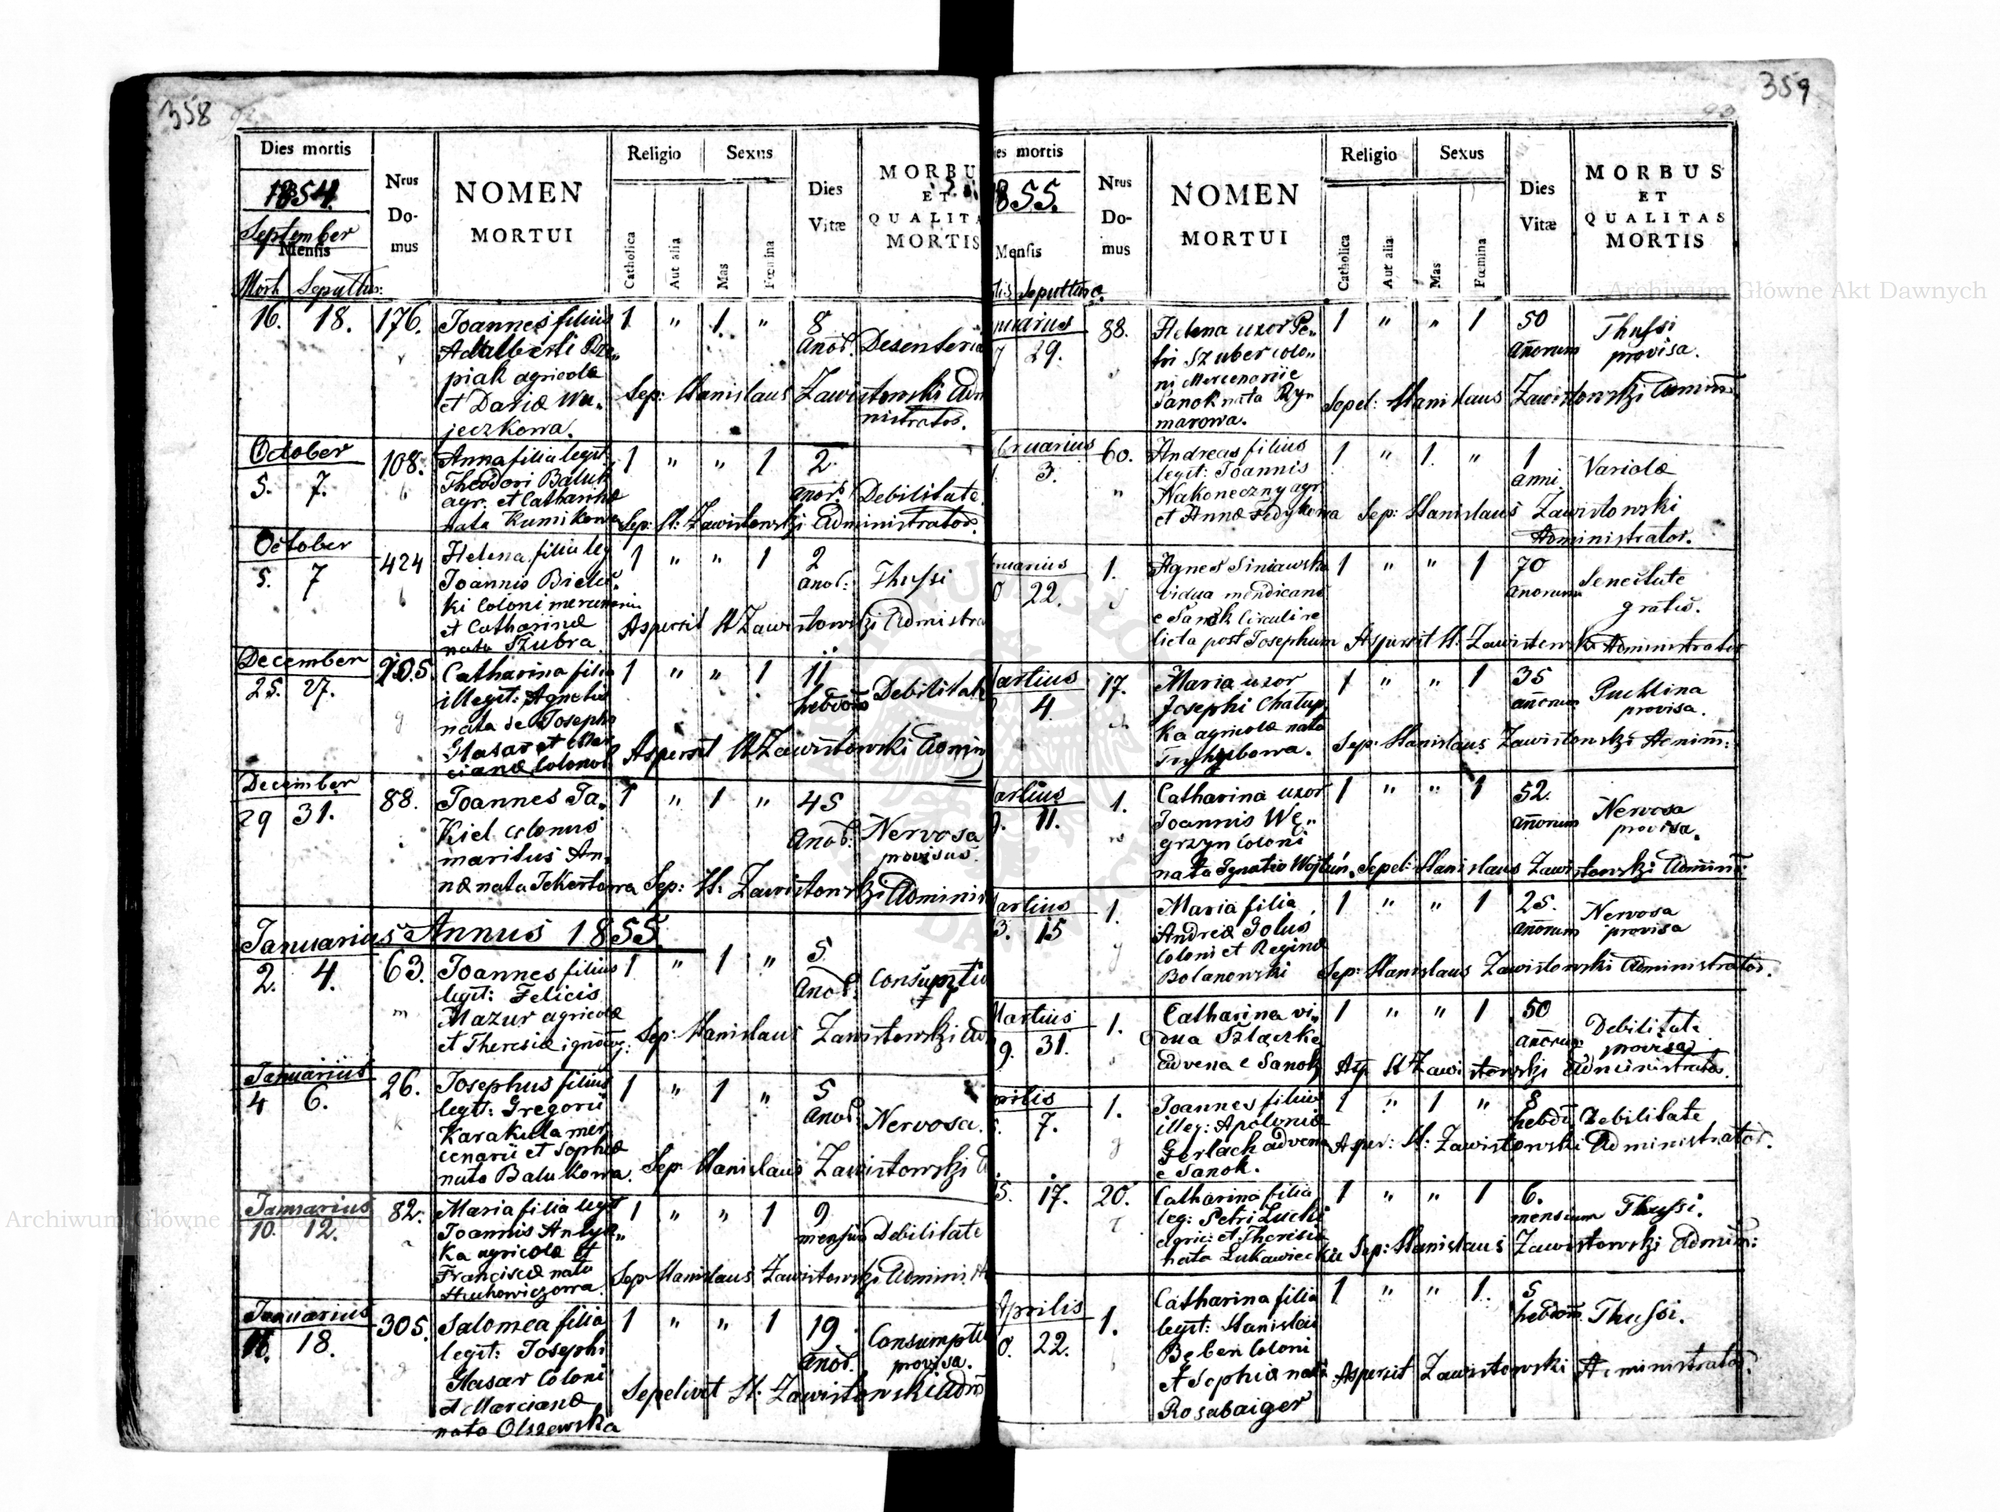 358
Dies mortis
1854.
September
Mensis
Mort. Sepultur:
Nrus Do-mus
NOMEN
MORTUI
Religio
Sexus
Catholica
Aut alia
Mas
Fœmina
Dies
Vitæ
MORBU
ET
QUALITA
MORTIS
16. 18. 176. Joannes filius 1 " 1 " 8
Adalberti
anor. Desenteria
piak agricolæ
Sep: Stanislaus Zawistowski Adm
et
nistrator.
jeczkowa.
October
108. Anna filia legit. 1 " " 1 2
5. 7. Theodori Baluk
anor. Debilitate.
agr. et Catharinæ
nata Kumikowa Sep: St: Zawistowski Administrator.
October
424 Helena filia leg 1 " " 1 2
5. 7 Joannis
anor: Thyssi
ki Coloni
et Catharinæ Aspersit St Zawistowski Admistra
nata Szubra.
December
205. Catharina filia 1 " " 1 11
25. 27. illegit: Agnetis
Debilitat
nata de Josepho
Glasar et Mar Aspersit St Zawistowski Admin
cianæ Colonor.
December
88. Joannes Ta- 1 " 1 " 45
29 31. kiel colonus
anor. Nervosa
maritus An-
provisus.
næ nata Tekertowa Sep: St: Zawistowski Adminis
Januarius Annus 1855.
2. 4. 63. Joannes filius 1 " 1 " 5.
legit: Felicis
anor. Consumptio
Mazur agricolæ
et Theresiæ Sep: Stanislaus Zawistowski Ad
Januarius
4 6. 26. Josephus filius 1 " 1 " 5
legit: Gregorii
anor. Nervosa.
Karakula mer
cenarii et Sophiæ
nata Balukowa. Sep: Stanislaus Zawistowski A
Januarius
10. 12. 82. Maria filia legit 1 " " 1 9
Joannis
mensium Debilitate
ka agricolæ et
Franciscæ nata Sep: Stanislaus Zawistowski Administ
Januarius
16. 18. 305. Salomea filia 1 " " 1 19
legit: Josephi
anor. Consumptio
Glasar Coloni
provisa.
et Marcianæ Sepelivit St: Zawistowski Adm
nata Olszewska
359
93
es mortis
855.
Mensis
tis Sepulturæ
Nrus Do-mus
NOMEN
MORTUI
Religio
Sexus
Catholica
Aut alia
Mas
Fœmina
Dies
Vitæ
MORBUS
ET
QUALITAS
MORTIS
nuarius
29. 88. Helena uxor Pe- 1 " " 1 50
tri Szuber colo-
anorum Thyssi
ni Mercenarii
provisa.
Sanok nata Ryn
marowa. Sepel: Stanislaus Zawistowski Admin
bruarius
3. 60. Andreas filius 1 " 1. " 1
legit: Joannis
anni. Variolæ
Nakoneczny agr.
et Annæ Fedykowa Sep: Stanislaus Zawistowski
Administrator.
ruarius
22. 1. Agnes Siniawska 1 " " 1 70
vidua mendicans
anorum Senectute
e Sanok Circuli re
gratis.
licta post Josephum Aspersit St. Zawistowski Administrator
artius
4. 17. Maria uxor 1 " " 1 35
Josephi Chatup
anorum Puchlina
ka agricolæ nata
provisa.
Sep: Stanislaus Zawistowski Admin:
artius
11. 1. Catharina uxor 1 " " 1 52.
Joannis Wę-
anorum Nervosa
grzyn Coloni
provisa.
nata Ignatio Wojtun, Sepel: Stanislaus Zawistowski Admin:
artius
3. 15 1. Maria filia 1 " " 1 25.
Andreæ Golus
anorum Nervosa
Coloni et Reginæ
provisa
Bolanowski Sep: Stanislaus Zawistowski Administrator.
Martius
9. 31. 1. Catharina vi- 1 " " 1 50
dua
anorum Debilitat
advena e Sanok
provisa
Asp St Zawistowski Administrator
prilis
7. 1. Joannes filius 1 " 1 " 8
illeg: Apoloniæ
hebd. Debilitate
Gerlach advena Asper: St: Zawistowski Administrator.
e Sanok.
5. 17. 20. Catharina filia 1 " " 1 6.
leg: Petri
mensium Thyssi.
agric: et Theresiæ
nata Lukawiecka Sep: Stanislaus Zawistowski Admin:
Aprilis
0. 22. 1. Catharina filia 1 " " 1. 5
legit: Stanislai
hebdom Thyssi.
Bęben Coloni
et Sophia nata Aspersit Zawistowski Administrator
Rosabaiger
Archiwum Główne Akt Dawnych
Archiwum Główne Akt Dawnych